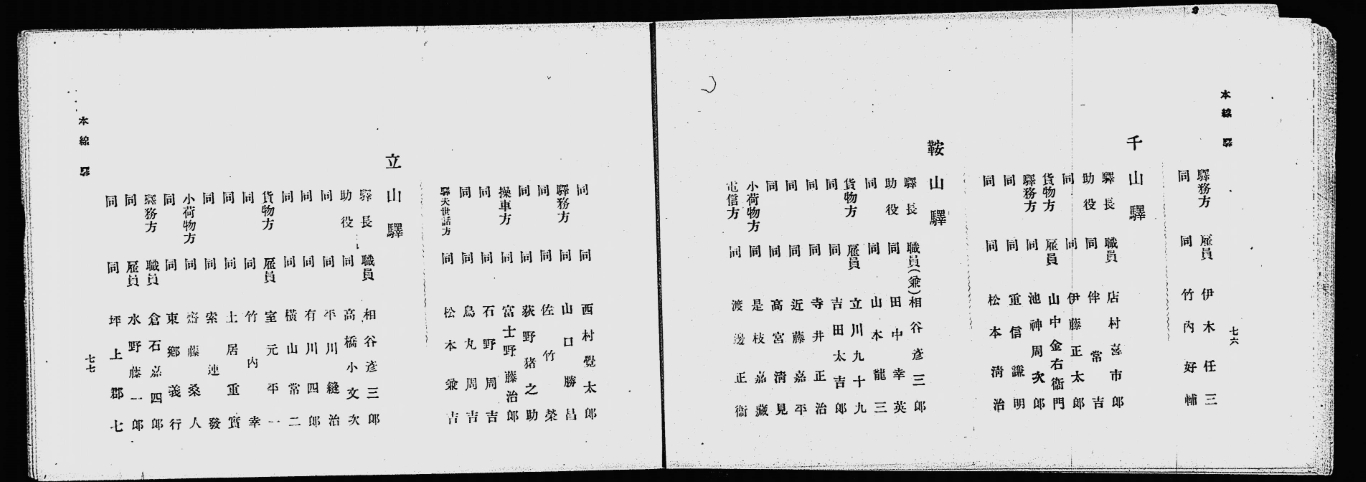 本線驛
七六
驛務方 雇員 伊木任三
同 同 竹內好輔
千山驛
驛長 職員 店村喜市郎
助役 同 伴常吉
同 同 伊藤正太郎
貨物方 雇員 山中金右衞門
驛務方 同 池神周次郎
同 同 重信謙明
同 同 松本淸治
鞍山驛
驛長 職員(兼) 相谷彥三郎
助役 同 田中幸英
同 同 山本龍三
貨物方 雇員 立川九十九
同 同 吉田太吉郎
同 同 寺井正治
同 同 近藤嘉平
同 同 高宮淸見
小荷物方 同 是枝嘉藏
電信方 同 渡邊正衞
同 同 西村覺太郎
驛務方 同 山口勝昌
同 同 佐竹榮
同 同 荻野猪之助
操車方 同 富士野藤治郎
同 同 石野周吉
同 同 鳥丸周吉
驛夫世話方 同 松本兼吉
立山驛
驛長 職員 相谷彥三郎
助役 同 高橋小文次
同 同 平川縫治
同 同 有川四郎
同 同 橫山常二
貨物方 雇員 室元平一
同 同 竹內幸
同 同 土居重實
同 同 連發
小荷物方 同 齋藤桑人
同 同 東鄕義行
驛務方 職員 倉石嘉四郎
同 雇員 水野藤一郎
同 同 坪上郡七
本線驛
七七